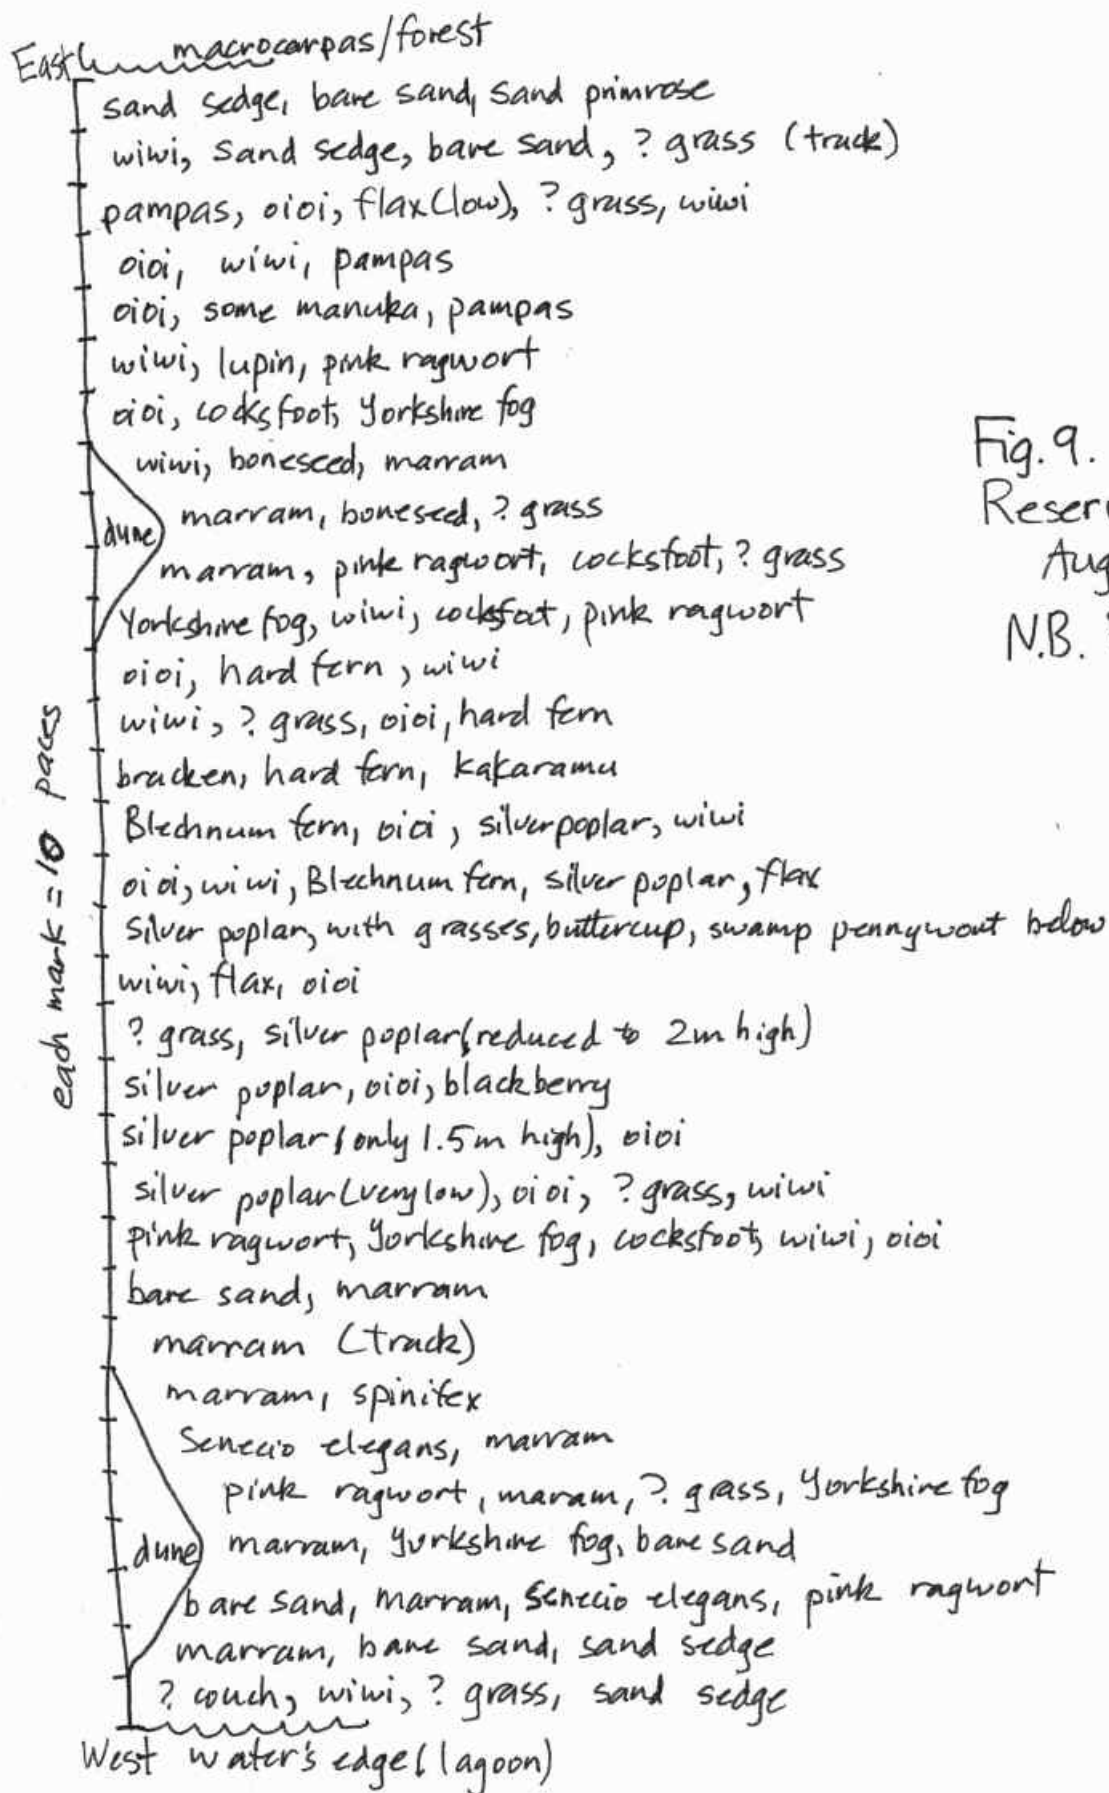 East macrocarpas/forest
sand sedge, bare sand, sand primrose
wiwi, sand sedge, bare sand, ? grass (track)
pampas, oioi, flax (low), ? grass, wiwi
oioi, wiwi, pampas
oioi, some manuka, pampas
wiwi, lupin, pink ragwort
oioi, cocksfoot, Yorkshire fog
wiwi, boneseed, marram
marram, boneseed, ? grass
dune
marram, pink ragwort, cocksfoot, ? grass
Yorkshire fog, wiwi, cocksfoot, pink ragwort
oioi, hard fern, wiwi
wiwi, ? grass, oioi, hard fern
bracken, hard fern, kakaramu
Blechnum fern, oioi, silver poplar, wiwi
oioi, wiwi, Blechnum fern, silver poplar, flax
silver poplar, with grasses, buttercup, swamp pennywort below
wiwi, flax, oioi
? grass, silver poplar (reduced to 2m high)
silver poplar, oioi, blackberry
silver poplar (only 1.5m high), oioi
silver poplar (very low), oioi, ? grass, wiwi
pink ragwort, Yorkshire fog, cocksfoot, wiwi, oioi
bare sand, marram
marram (track)
marram, spinifex
Senecio elegans, marram
pink ragwort, maram, ? grass, Yorkshire fog
dune marram, Yorkshire fog, bare sand
bare sand, marram, Senecio elegans, pink ragwort
marram, bare sand, sand sedge
? couch, wiwi, ? grass, sand sedge
West water's edge (lagoon)
each mark = 10 paces
Fig. 9.
Reser
Aug
N.B.